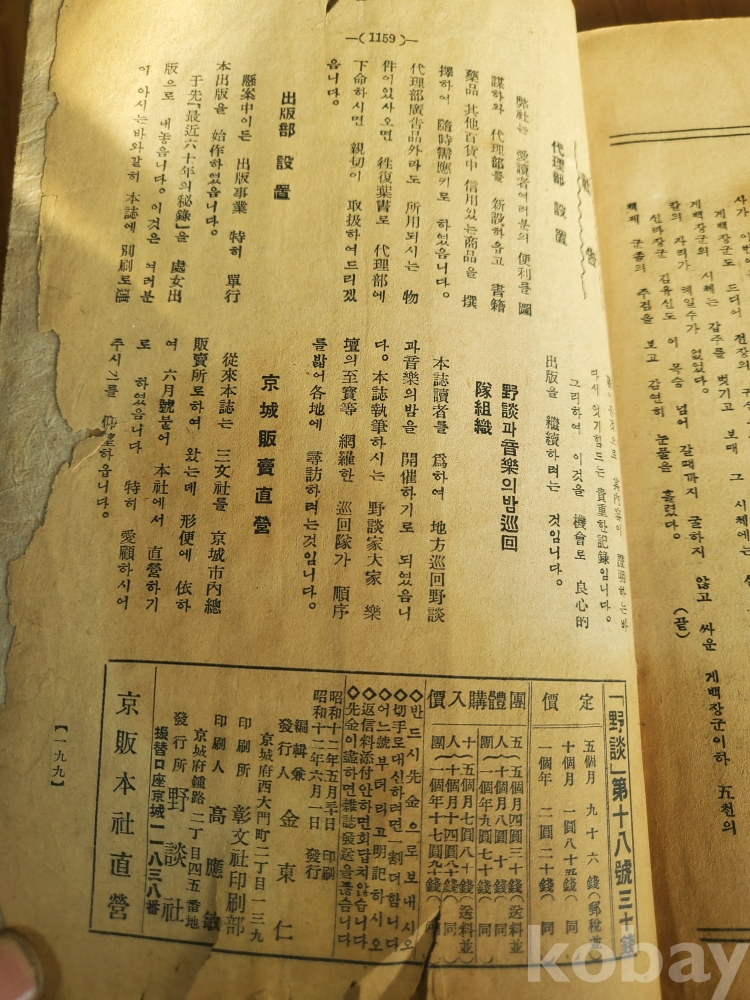 —( 1159 )—
社告
代理部 設置
弊社는 愛讀者여러분의 便利를 圖
謀하와 代理部를 新設하옵고 書籍
藥品 其他百貨中 信用있는商品을 撰
擇하여 隨時需應키로 하였읍니다.
代理部廣告品外라도 所用되시는 物
件이있사오면 往復葉書로 代理部에
下命하시면 親切이 取扱하여드리겠
읍니다.
出版部 設置
懸案中이든 出版事業 特히 單行
本出版을 始作하였읍니다.
于先「最近六十年의秘錄」을 處女出
版으로 내놓읍니다. 이것은 여러분
이 아시는바와같히 本誌에 別刷로
다시 엇기힘드는 貴重한記錄입니다.
그리하여 이것을 機會로 良心的
出版을 繼續하려는 것입니다.
野談과音樂의밤巡回
隊組織
本誌讀者를 爲하여 地方巡回野談
과音樂의밤을 開催하기로 되였읍니
다. 本誌執筆하시는 野談家大家 樂
壇의至寶等 網羅한 巡回隊가 順序
를밟어各地에 尋訪하려는것입니다.
京城販賣直營
從來本誌는 三文社를 京城市內總
販賣所로하여 왔는데 形便에 依하
여 六月號붙어 本社에서 直營하기
로 하였읍니다 特히 愛顧하시어
주시기를 仰望하옵니다.
「野談」第十八號三十錢
定價
五個月 九十六錢(郵稅並)
十個月 一圓八十五錢(同)
一個年 二圓二十錢(同)
團體購入價
五人團
五個月四圓三十錢(送料並)
十個月八圓十錢(同)
一個年九圓七十錢(同)
十人團
五個月七圓八十錢(送料並)
十個月十四圓八十錢(同)
一個年十七圓九十錢(同)
◇반드시先金으로보내시오
◇切手로대신하려면一割더합니다
◇어느號부터라고明記하시오
◇返信料添付안하면回답치않습니다
◇先金이盡하면雜誌發送을끊습니다
昭和十二年五月 印刷
昭和十二年六月一日 發行
編輯兼發行人 金東仁
京城府西大門町二丁目一三九
印刷所 彰文社印刷部
印刷人 高應敏
京城府鍾路二丁目四五番地
發行所 野談社
振替口座京城二一八三八番
京販本社直營
【一九九】
게백장군도 드디어 전장의
게백장군의 시체는 갑주를 벗기고 보매 그 시체에는
칼의 자리가 헤일수가 없었다.
신라장군 김유신도 이 목숨 넘어 갈때까지 굴하지 않고 싸운 게백장군이하 五천의
백제 군졸의 주검을 보고 감연히 눈물을 흘렸다.
(끝)
kobay